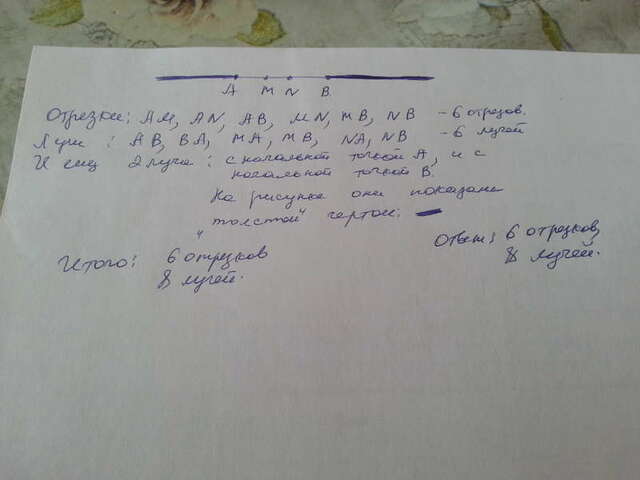 А М N В
Отрезки: АМ, АN, АВ, МN, МВ, NВ - 6 отрезов.
Лучи : АВ, ВА, МА, МВ, NА, NВ - 6 лучей
И ещё 2 луча : с начальной точкой А, и с
начальной точкой В.
На рисунке они показаны
"толстой" чертой.
Итого: 6 отрезков
8 лучей.
Ответ: 6 отрезков,
8 лучей.